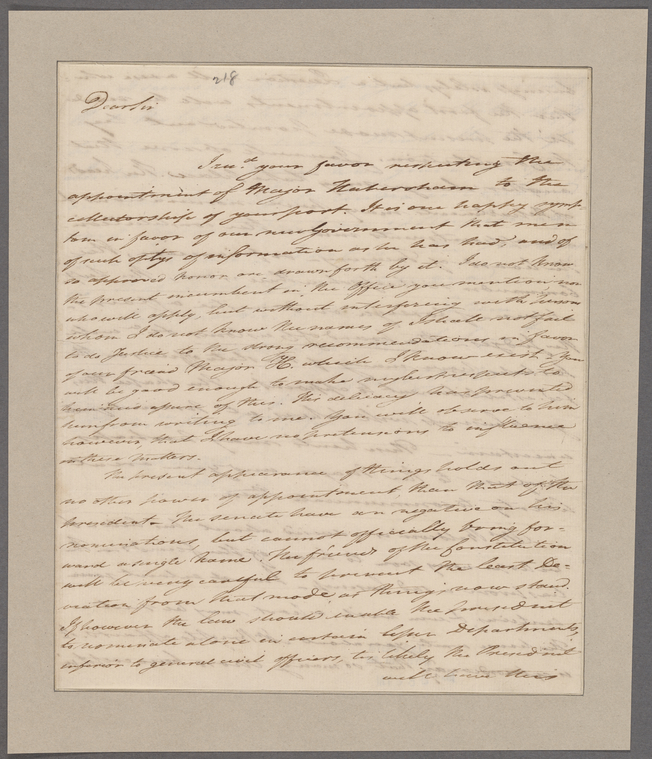 218
Dear Sir
I rec.d your favor respecting the
appointment of Major Habersham to the
collectorship of your port. It is one happy symp
tom in favor of our new Government that men
of such of information as he has had, and of
so approved honor are drawn forth by it. I do not know
the present incumbent in the Office you mention, nor
who will apply, but without interfering with
whom I do not know the names of I shall not fail
to do Justice to the strong recommendations in favor
of your friend Major H. which I know exist. You
will be good enough to make my best respects to
him & assure of this. His delicacy has prevented
him from writing to me. You will observe to him
however that I have no pretensions to influence
in these matters.
The present appearance of things holds out
no other power of appointment, than that of the
President. The senate have an negative on his
nominations, but cannot officially bring for-
ward a single name. The friends of the Constitution
will be very careful to prevent the least De-
viation from that mode as things now stand.
If however the law should enable the president
to nominate alone in certain lesser Departments,
inferior to general civil officers, tis likely the President
will leave this